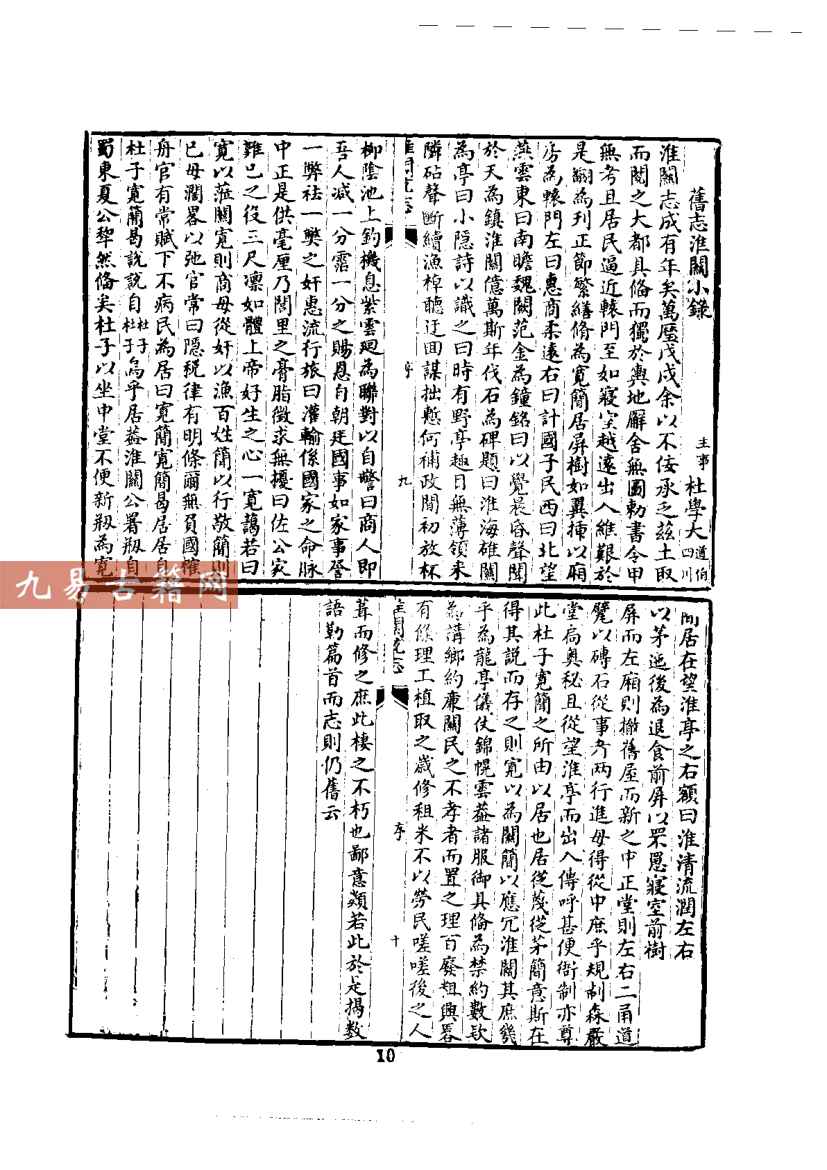 舊志淮關小錄
主事 杜學大 道伯 四川
淮關志成有年矣萬曆戊戌余以不佞承乏茲土取
而閱之大都具俻而獨於輿地廨舍無圖勅書令甲
無考且居民逼近轅門至如寢室越遠出入維艱於
是翻為刋正節繁繕俻為寛簡居屏樹如翼揷以廂
房為轅門左曰惠商柔遠右曰計國子民西曰北望
燕雲東曰南瞻魏闕范金為鐘銘曰以覺晨昏聲聞
於天為鎮淮關億萬斯年伐石為碑題曰淮海雄關
為亭曰小隠詩以識之曰時有野亭趣日無薄領来
隣砧聲斷續漁棹聽迂囬謀拙慙何補政閒初放杯
淮關統志
序
九
柳陰池上釣機息紫雲廻為聯對以自警曰商人即
吾人减一分霑一分之賜恩自朝廷國事如家事釐
一弊祛一獘之奸惠流行旅曰灌輸係國家之命脉
中正是供毫厘乃閭里之膏脂徵求無擾曰佐公家
難已之役三尺凛如體上帝好生之心一寛謁若曰
寛以蒞關寛則商毋從奸以漁百姓簡以行敎簡則
已毋濶畧以弛官常曰隠税律有明條爾無負國榷
舟官有常賦下不病民為居曰寛簡寛簡曷居居自
杜子寛簡曷說說自杜子杜子烏乎居葢淮關公署剏自
蜀東夏公犂然俻矣杜子以坐中堂不便新剏為寛
簡居在望淮亭之右額曰淮清流潤左右
以茅迤後為退食前屏以罘罳寢室前樹
屏而左廂則撤舊屋而新之中正堂則左右二甬道
甃以磚石從事者两行進毋得從中庶乎規制森嚴
堂扄奥秘且從望淮亭而出入傳呼甚便衙制亦尊
此杜子寛簡之所由以居也居從茂從茅簡意斯在
得其說而存之則寛以為關簡以應冗淮關其庶幾
乎為龍亭儀仗錦幌雲葢諸服御具俻為禁約數欵
為講鄉約亷關民之不孝者而置之理百廢粗興畧
有條理工植取之歳修租米不以勞民嗟嗟後之人
淮關統志
序
十
葺而修之庶此棲之不朽也鄙意纇若此於是揭数
語勒篇首而志則仍舊云
10
九易古籍网